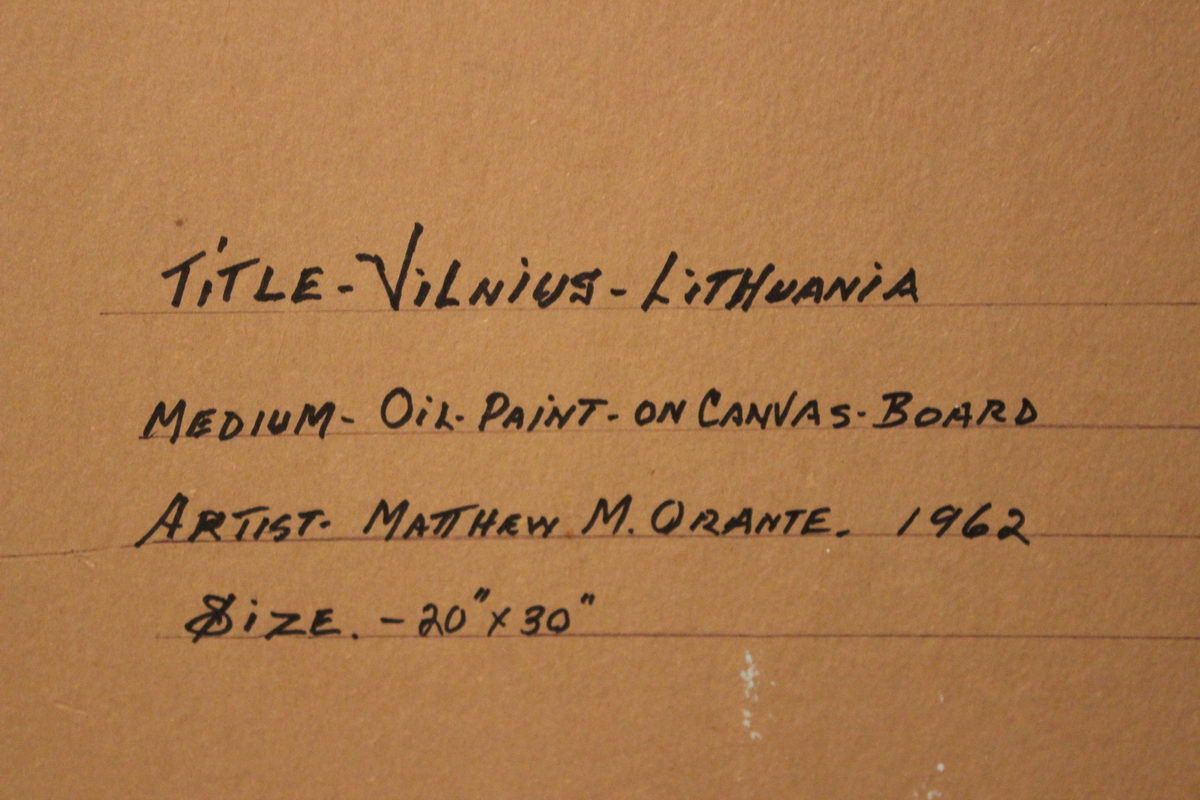 TITLE - VILNIUS - LITHUANIA
MEDIUM - OIL - PAINT - ON CANVAS - BOARD
ARTIST - MATTHEW M. ORANTE. 1962
SIZE. - 20" x 30"